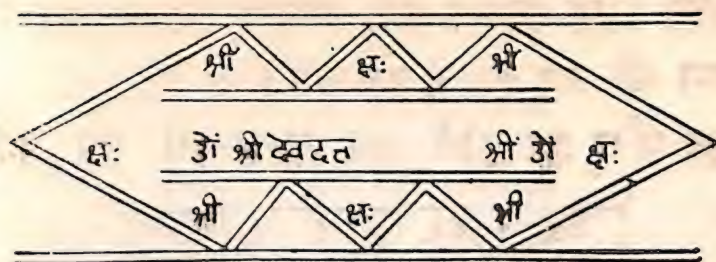 श्रीं क्षः श्रीं
क्षः ओं श्रीं देवदत्त श्रीं ओं क्षः
श्री क्षः श्री